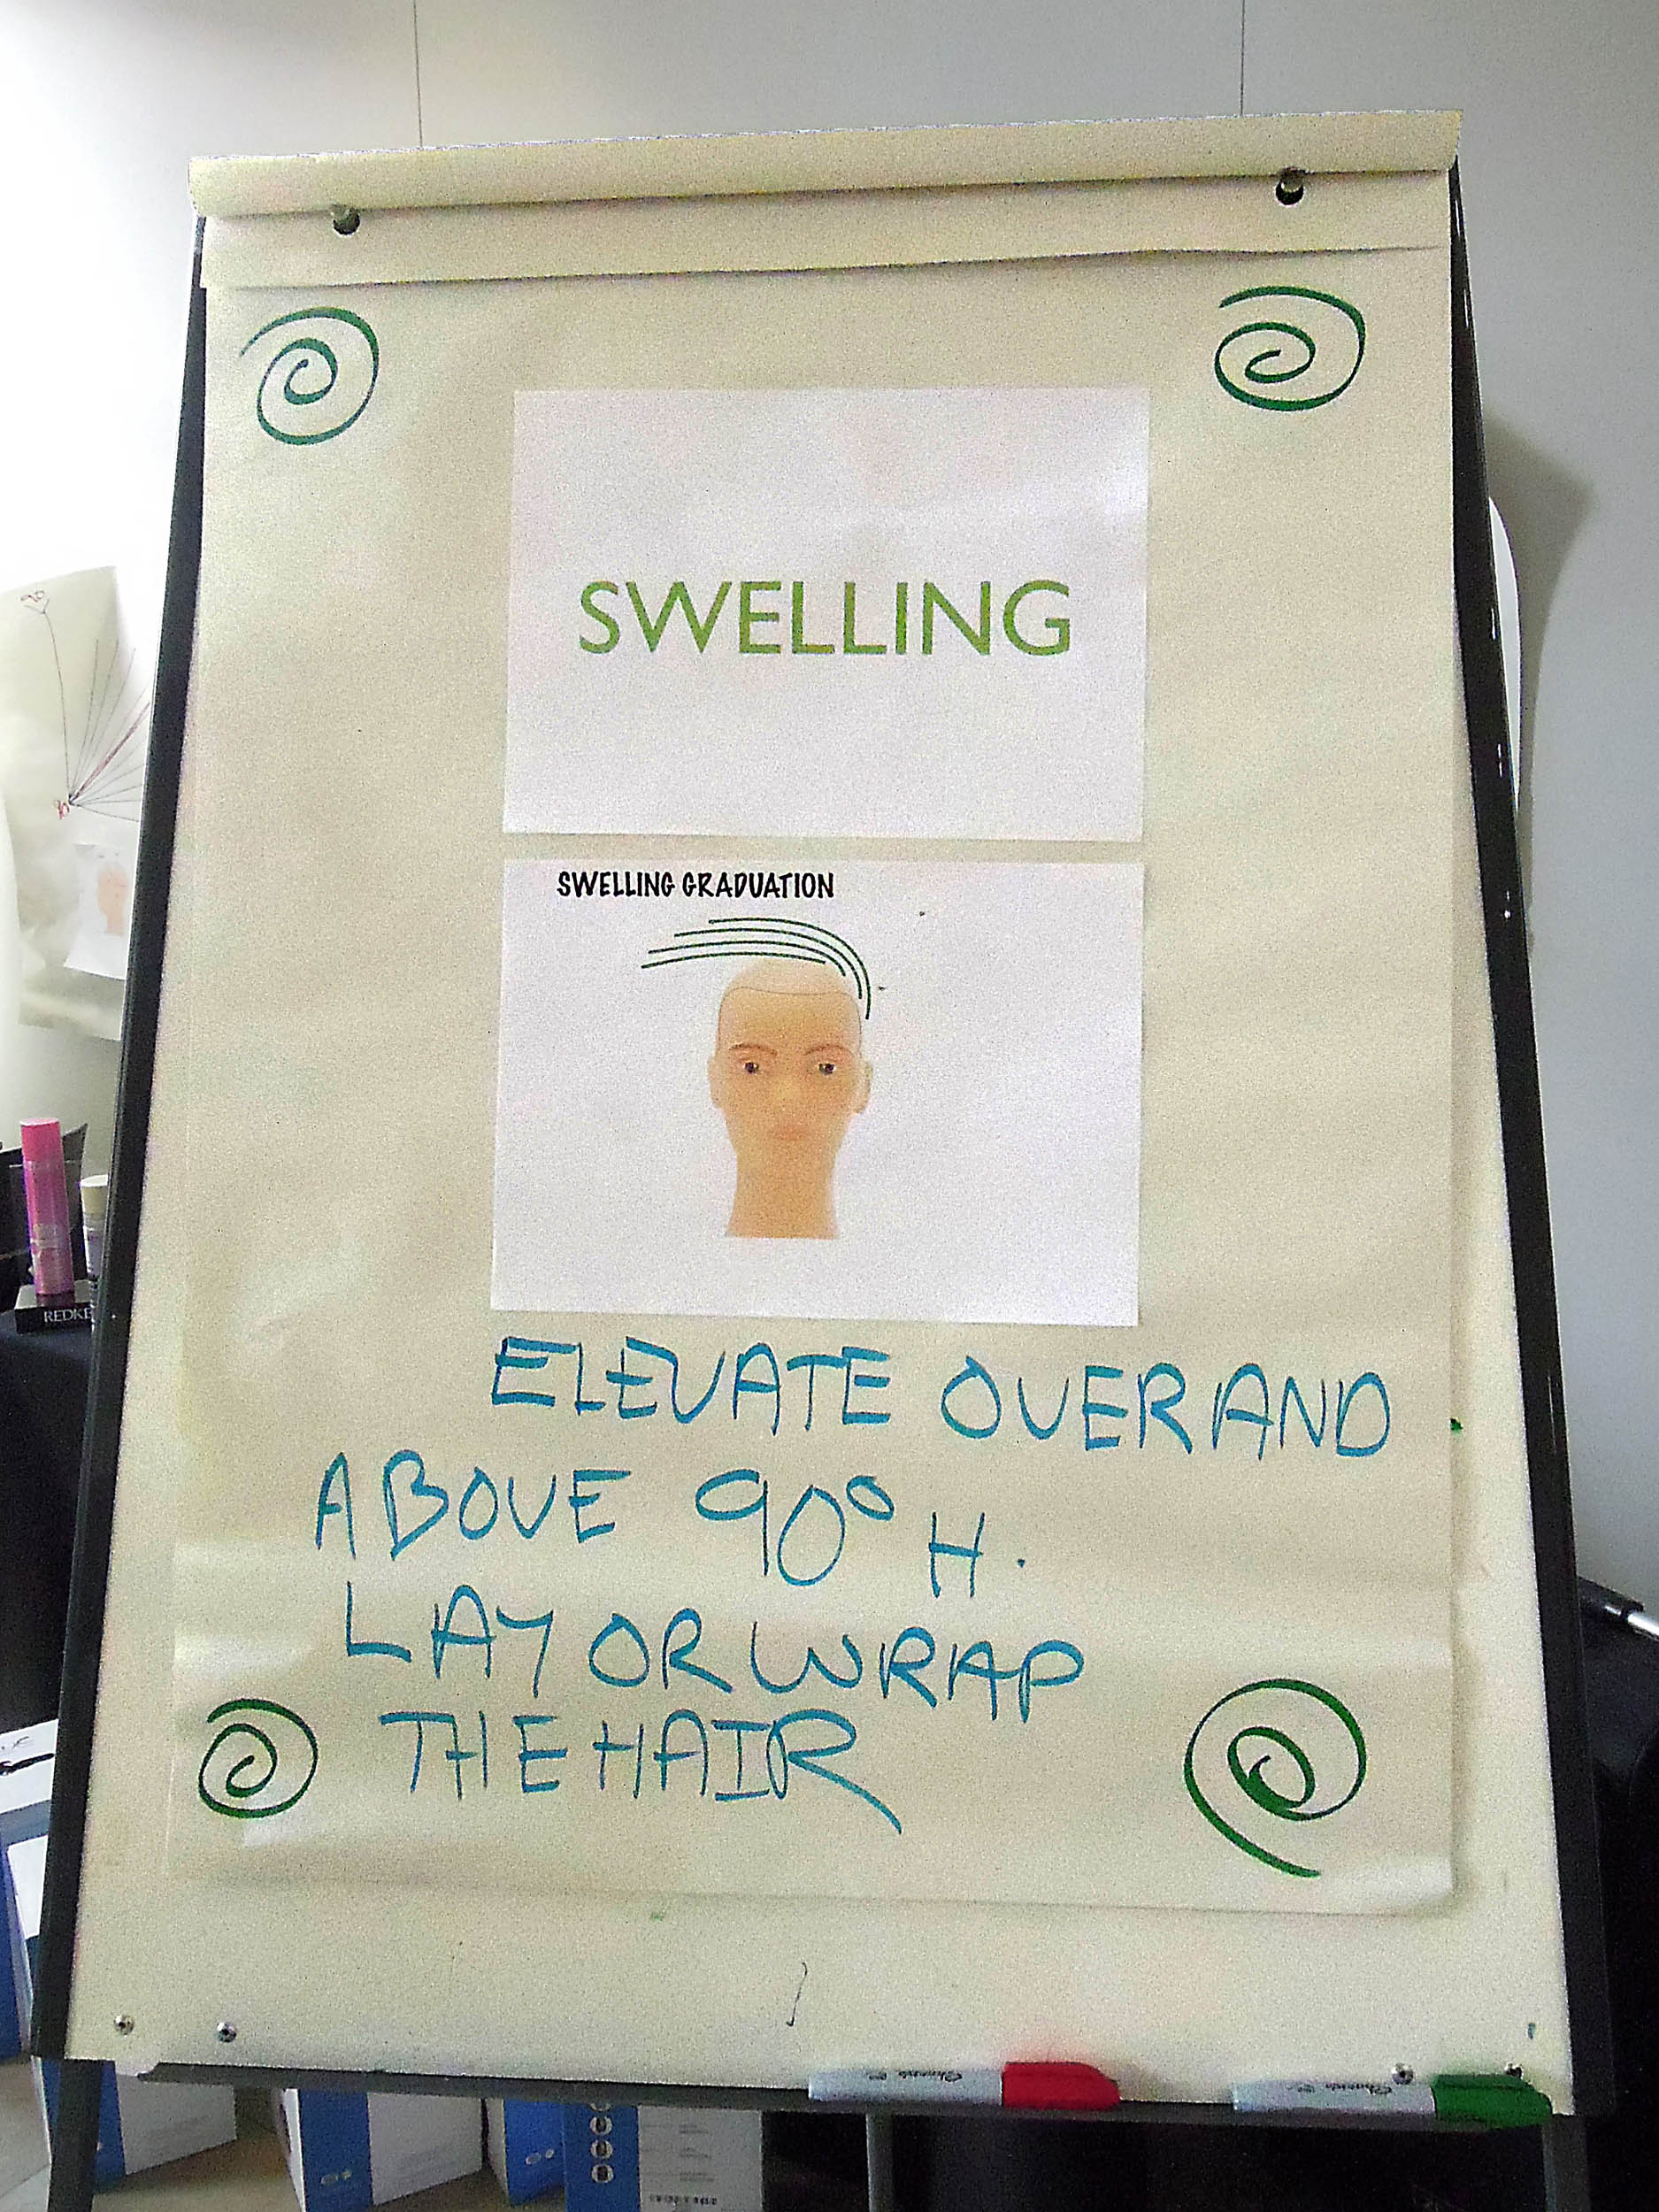 SWELLING
SWELLING GRADUATION
ELEVATE OVER AND
ABOVE 90° H.
LAY OR WRAP
THE HAIR
REDKE
Sharpie
Sharpie